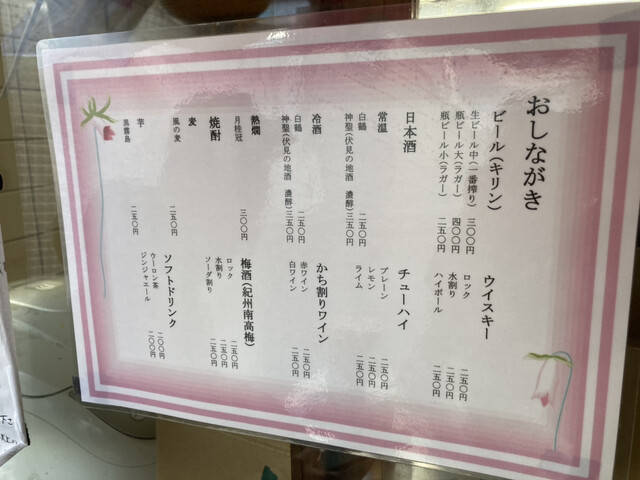 おしながき
ビール(キリン)
生ビール中(一番搾り) 三〇〇円
瓶ビール大(ラガー) 四〇〇円
瓶ビール小(ラガー) 二五〇円
日本酒
常温
白鶴 二五〇円
神聖(伏見の地酒 濃醇)三五〇円
冷酒
白鶴 二五〇円
神聖(伏見の地酒 濃醇)三五〇円
熱燗
月桂冠 三〇〇円
焼酎
麦
風の麦 二五〇円
芋
黒霧島 二五〇円
ウイスキー
ロック 二五〇円
水割り 二五〇円
ハイボール 二五〇円
チューハイ
プレーン 二五〇円
レモン 二五〇円
ライム 二五〇円
かち割りワイン
赤ワイン 二五〇円
白ワイン 二五〇円
梅酒(紀州南高梅)
ロック 二五〇円
水割り 二五〇円
ソーダ割り 二五〇円
ソフトドリンク
ウーロン茶 二〇〇円
ジンジャエール 二〇〇円
下さ